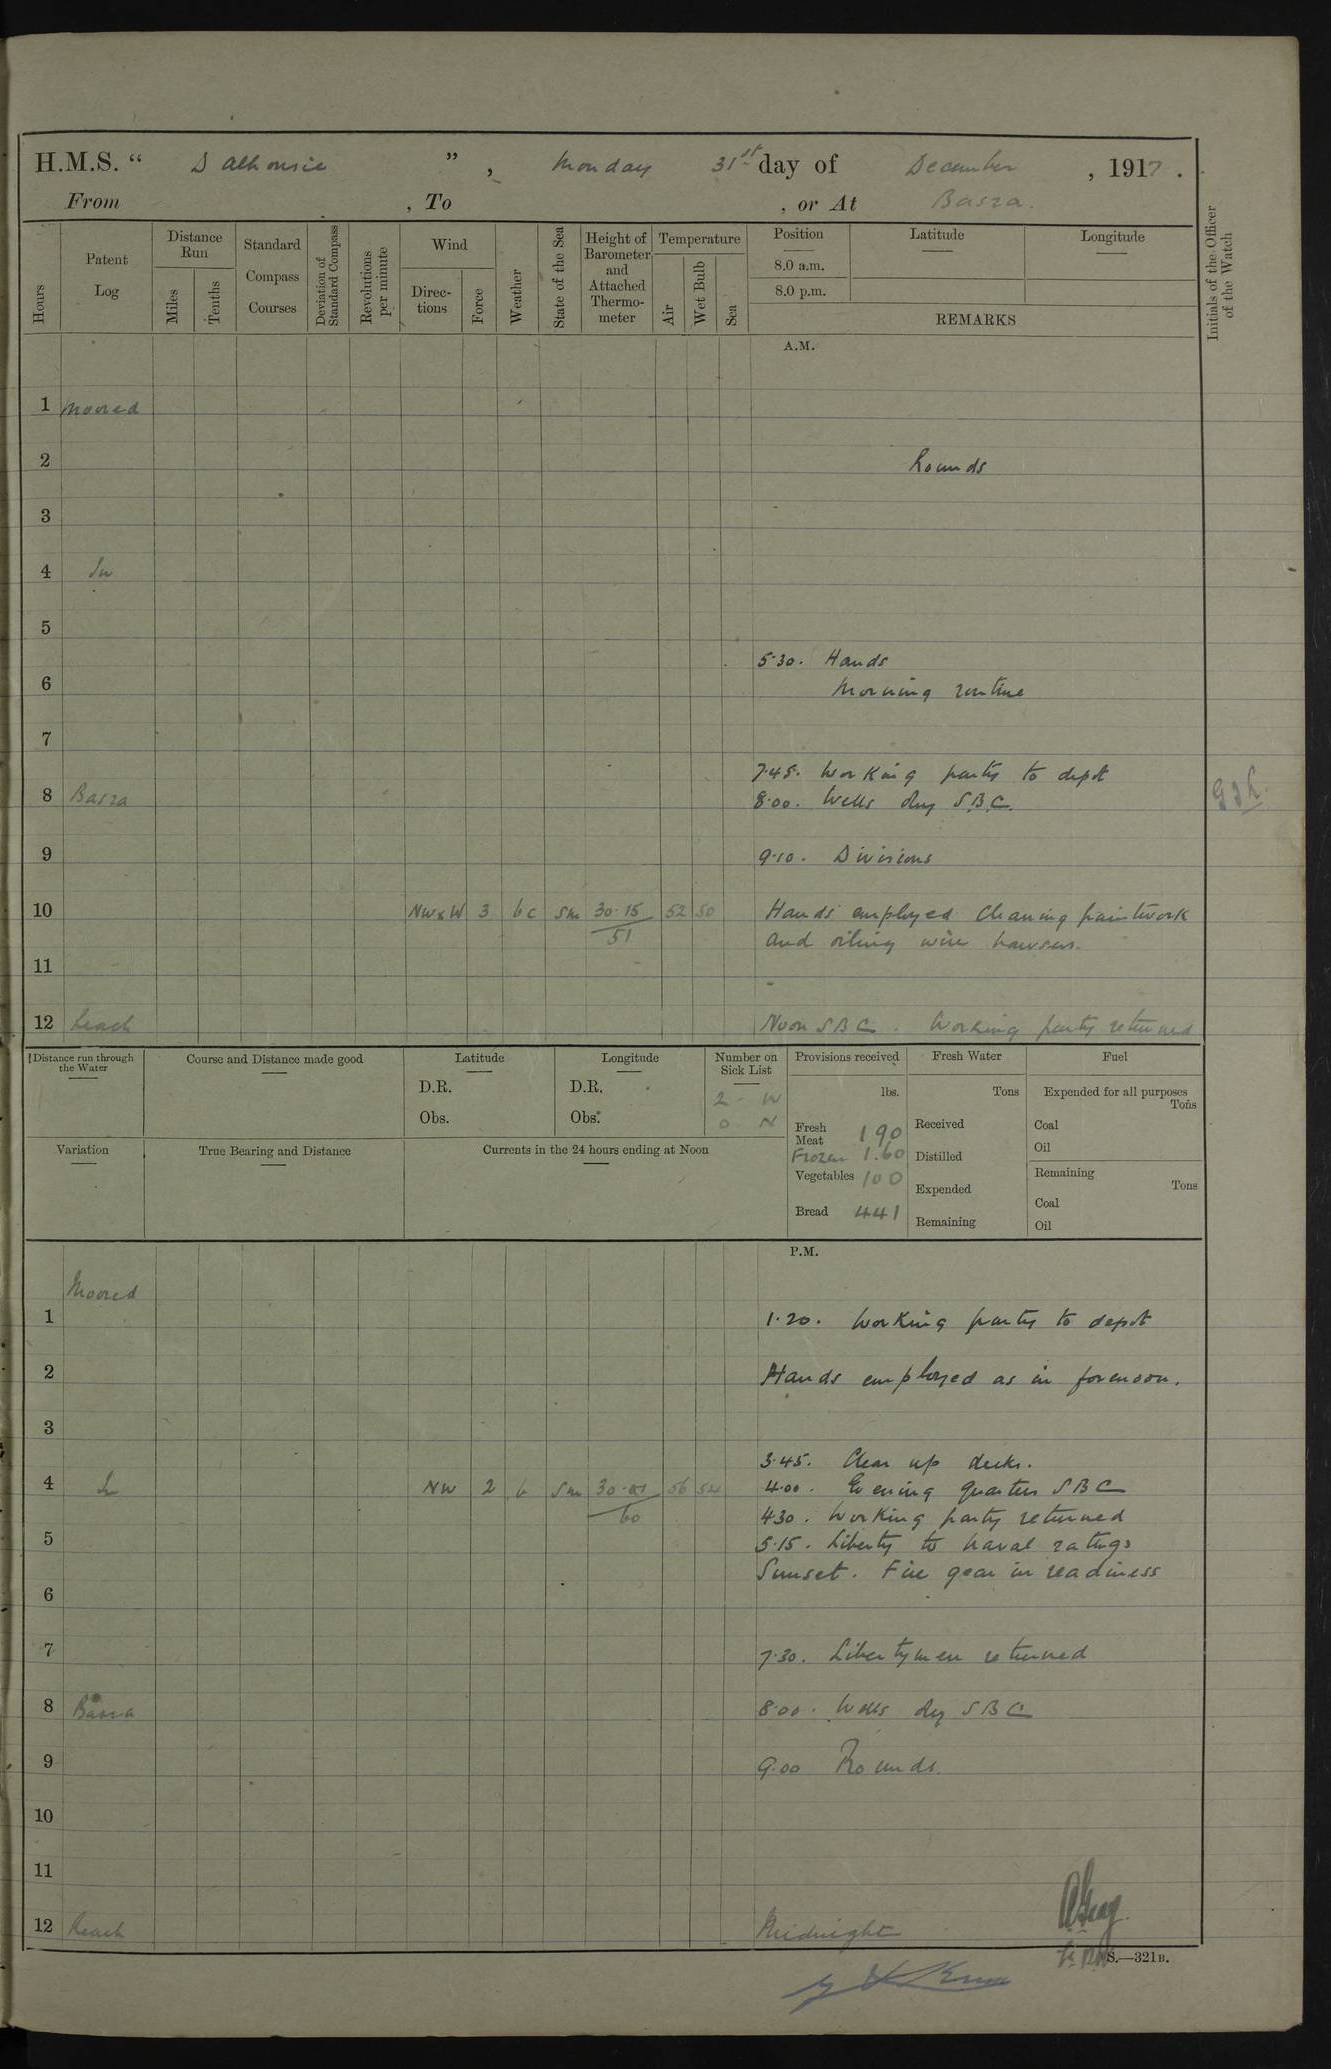 H.M.S. “ Dalhousie ”, Monday 31st day of December, 1917.
From , To , or At Basra.
Hours
Patent Log
Distance Run
Miles
Tenths
Standard Compass Courses
Deviation of Standard Compass
Revolutions per minute
Wind
Direc-tions
Force
Weather
State of the Sea
Height of Barometer and Attached Thermo-meter
Temperature
Air
Wet Bulb
Sea
Position
8.0 a.m.
8.0 p.m.
Latitude
Longitude
REMARKS
Initials of the Officer of the Watch
A.M.
1 Moored
2 Rounds
3
4 In
5
5.30. Hands
6 Morning routine
7
7.45. Working party to depot
8 Basra 8.00. Wells dry S.B.C.
9 9.10. Divisions
10 NWxW 3 bc Sm 30.15 52 50 Hands employed cleaning paintwork
51 and oiling wire hawsers.
11
12 Reach Noon SBC. Working party returned
Distance run through the Water
Course and Distance made good
Latitude
D.R.
Obs.
Longitude
D.R.
Obs.
Number on Sick List
2 - W
0 N
Provisions received
lbs.
Fresh Meat 190
Frozen 1.60
Vegetables 100
Bread 441
Fresh Water
Tons
Received
Distilled
Expended
Remaining
Fuel
Expended for all purposes
Tons
Coal
Oil
Remaining
Tons
Coal
Oil
Variation
True Bearing and Distance
Currents in the 24 hours ending at Noon
P.M.
Moored
1 1.20. Working party to depot
2 Hands employed as in forenoon.
3
3.45. Clear up decks.
4 In NW 2 b Sm 56 54 4.00. Evening quarters SBC
60 4.30. Working party returned
5 5.15. Liberty to naval ratings
Sunset. Fire gear in readiness
6
7 7.30. Libertymen returned
8 Basra 8.00. Wells dry SBC
9 9.00 Rounds.
10
11
12 Reach Midnight
S.—321B.